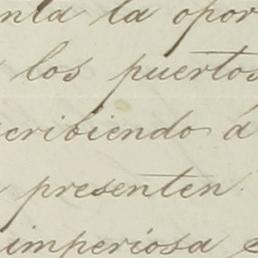 enta la opor
los puertos
scribiendo á
presenten
imperiosa e